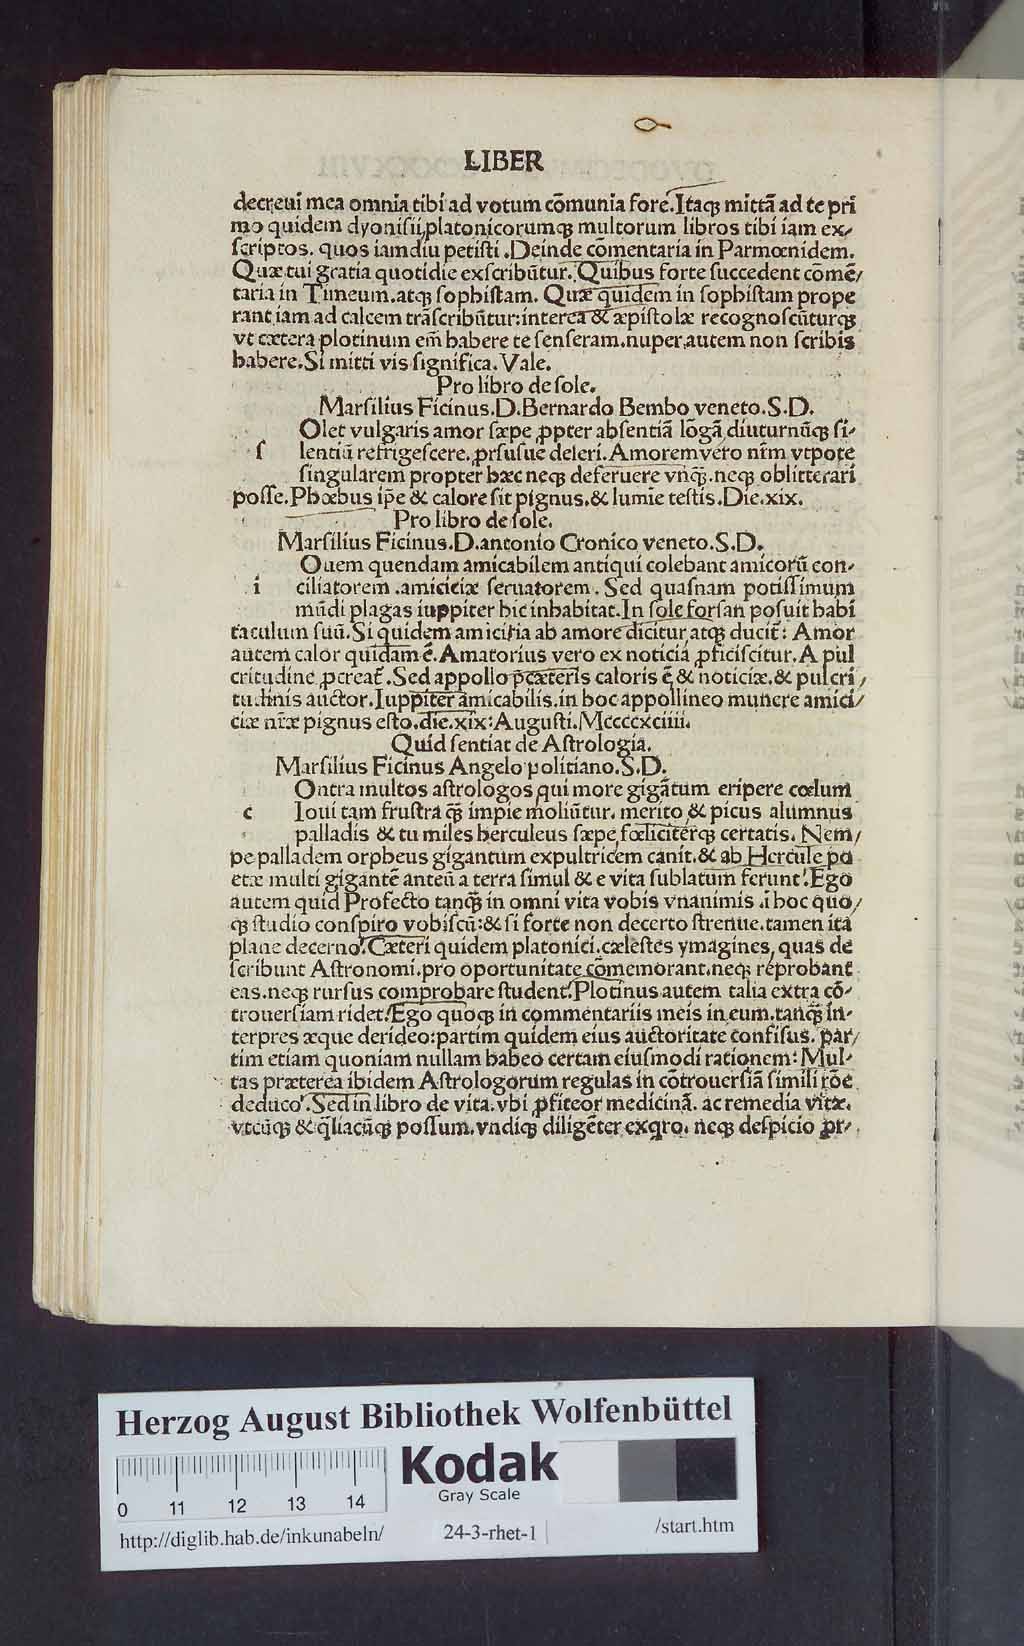 LIBER
decreui mea omnia tibi ad votum cõmunia fore. Itaqꝫ mittã ad te pri
mo quidem dyonisii, platonicorumqꝫ multorum libros tibi iam ex-
scriptos. quos iamdiu petisti. Deinde cõmentaria in Parmœnidem.
Quæ tui gratia quotidie exscribũtur. Quibus forte succedent cõmẽ/
taria in Timeum. atqꝫ sophistam. Quæ quidem in sophistam prope
rant iam ad calcem trãscribũtur: interea & æpistolæ recognoscũturqꝫ
vt cætera plotinum em̃ habere te senseram. nuper. autem non scribis
habere. Si mitti vis significa. Vale.
Pro libro de sole.
Marsilius Ficinus. D. Bernardo Bembo veneto. S. D.
Olet vulgaris amor sæpe ꝓpter absentiã lõgã, diuturnũqꝫ si-
s lentiũ refrigescere. prsusue deleri. Amorem vero nr̃m vtpote
singularem propter hæc neqꝫ deferuere vnqꝫ̃. neqꝫ oblitterari
posse. Phœbus ip̃e & calore sit pignus. & lumie testis. Die. xix.
Pro libro de sole.
Marsilius Ficinus. D. antonio Cronico veneto. S. D.
Ouem quendam amicabilem antiqui colebant amicorũ con-
i ciliatorem. amiciciæ seruatorem. Sed quasnam potissimum
mũdi plagas iuppiter hic inhabitat. In sole forsan posuit habi
taculum suũ. Si quidem amicitia ab amore dicitur, atqꝫ ducit̃: Amor
autem calor quidam ẽ. Amatorius vero ex noticia ꝓficiscitur. A pul
critudine ꝓcreat̃. Sed appollo p̃ cæteris caloris ẽ & noticiæ. & pulcri/
tudinis auctor. Iuppiter amicabilis. in hoc appollineo munere amici/
ciæ nr̃æ pignus esto. die. xix: Augusti. Mccccxciiii.
Quid sentiat de Astrologia.
Marsilius Ficinus Angelo politiano. S. D.
Ontra multos astrologos qui more gigãtum eripere cœlum
c Ioui tam frustra qꝫ̃ impie moliũtur. merito & picus alumnus
palladis & tu miles herculeus sæpe, fœliciterqꝫ certatis. Nem/
pe palladem orpheus gigantum expultricem canit. & ab Hercule po
etæ multi gigantẽ anteũ a terra simul & e vita sublatum ferunt. Ego
autem quid Profecto tanqꝫ̃ in omni vita vobis vnanimis. ĩ hoc quo/
qꝫ studio conspiro vobiscũ: & si forte non decerto strenue. tamen ita
plane decerno. Cæteri quidem platonici. cælestes ymagines, quas de
scribunt Astronomi. pro oportunitate cõmemorant. neqꝫ reprobant
eas. neqꝫ rursus comprobare student. Plotinus autem talia extra cõ-
trouersiam ridet. Ego quoqꝫ in commentariis meis in eum. tanqꝫ̃ in-
terpres æque derideo: partim quidem eius auctoritate confisus. par/
tim etiam quoniam nullam habeo certam eiusmodi rationem: Mul-
tas præterea ibidem Astrologorum regulas in cõtrouersiã simili rõe
deduco. Sed in libro de vita. vbi ꝓfiteor medicinã. ac remedia vitæ.
vtcũqꝫ & q̃liacũqꝫ possum. vndiqꝫ diligẽter exqro. neqꝫ despicio pr-
Herzog August Bibliothek Wolfenbüttel
Kodak
Gray Scale
0 11 12 13 14
http://diglib.hab.de/inkunabeln/ 24-3-rhet-1 /start.htm